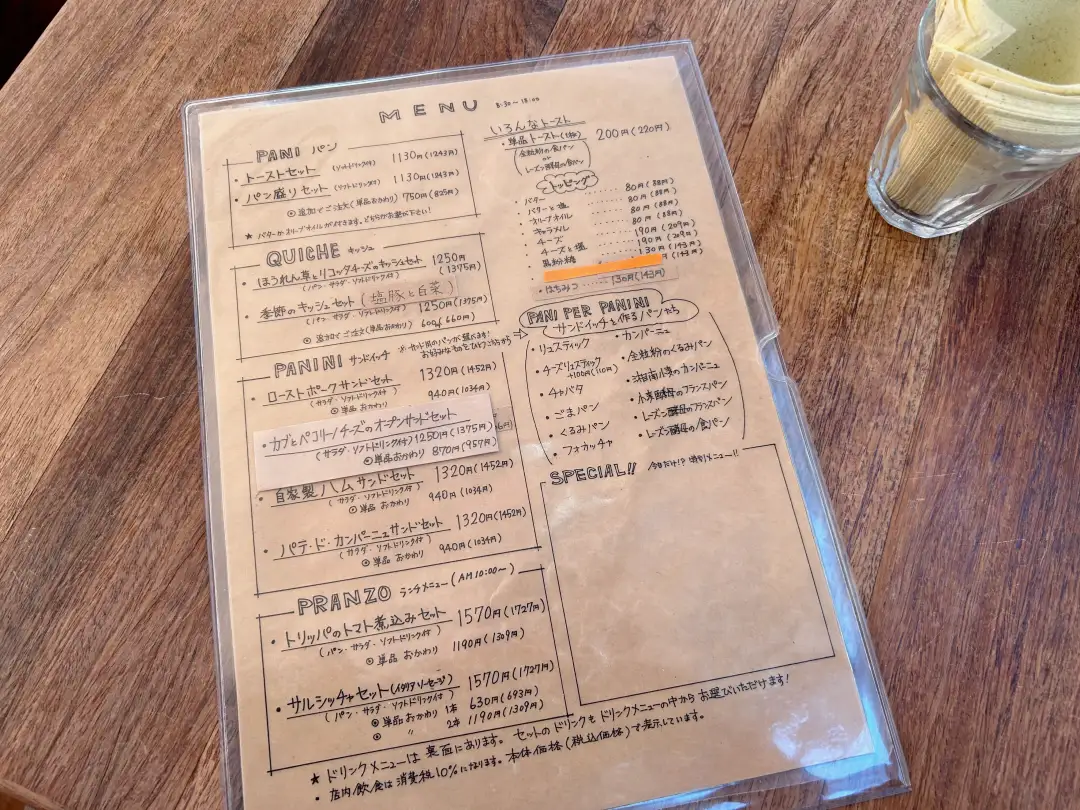 MENU 8:30～18:00
PANI パン
・トーストセット (ソフトドリンク付) 1130円(1243円)
・パン盛りセット (ソフトドリンク付) 1130円(1243円)
◎追加でご注文(単品おかわり) 750円(825円)
★ バターかオリーブオイルが付きます。どちらかお選び下さい!
QUICHE キッシュ
・ほうれん草とリコッタチーズのキッシュセット 1250円
(パン・サラダ・ソフトドリンク付) (1375円)
・季節のキッシュセット (塩豚と白菜)
(パン・サラダ・ソフトドリンク付) 1250円(1375円)
◎追加でご注文(単品おかわり) 600円(660円)
PANINI サンドイッチ ※サンド用のパンが選べます!
お好みなものをひとつ右方から
・ローストポークサンドセット 1320円(1452円)
(サラダ・ソフトドリンク付)
◎単品おかわり 940円(1034円)
・カブとペコリーノチーズのオープンサンドセット
(サラダ・ソフトドリンク付) 1250円(1375円)
◎単品おかわり 870円(957円)
・自家製ハムサンドセット 1320円(1452円)
(サラダ・ソフトドリンク付)
◎単品 おかわり 940円(1034円)
・パテ・ド・カンパーニュサンドセット 1320円(1452円)
(サラダ・ソフトドリンク付)
◎単品 おかわり 940円(1034円)
PRANZO ランチメニュー(AM10:00～)
・トリッパのトマト煮込みセット 1570円(1727円)
(パン・サラダ・ソフトドリンク付)
◎単品 おかわり 1190円(1309円)
・サルシッチャセット(イタリアソーセージ) 1570円(1727円)
(パン・サラダ・ソフトドリンク付)
◎単品おかわり 1本 630円(693円)
◎ 〃 2本 1190円(1309円)
いろんなトースト
・単品トースト(1枚) 200円(220円)
(全粒粉の食パン
or
レーズン酵母の食パン)
トッピング
・バター ‥‥‥ 80円(88円)
・バターと塩 ‥‥‥ 80円(88円)
・オリーブオイル ‥‥‥ 80円(88円)
・キャラメル ‥‥‥ 80円(88円)
・チーズ ‥‥‥ 190円(209円)
・チーズと塩 ‥‥‥ 190円(209円)
・黒粉糖 ‥‥‥ 130円(143円)
円(143円)
・はちみつ ‥‥‥ 130円(143円)
PANI PER PANINI
サンドイッチを作るパンたち
・リュスティック
・チーズリュスティック
+100円(110円)
・チャバタ
・ごまパン
・くるみパン
・フォカッチャ
・カンパーニュ
・全粒粉のくるみパン
・湘南小麦のカンパーニュ
・小麦酵母のフランスパン
・レーズン酵母のフランスパン
・レーズン酵母の食パン
SPECIAL!! 今日だけ!? 特別メニュー!!
★ ドリンクメニューは 裏面にあります。セットのドリンクもドリンクメニューの中からお選びいただけます!
・店内飲食は消費税10%になります。本体価格(税込価格)で表示しています。